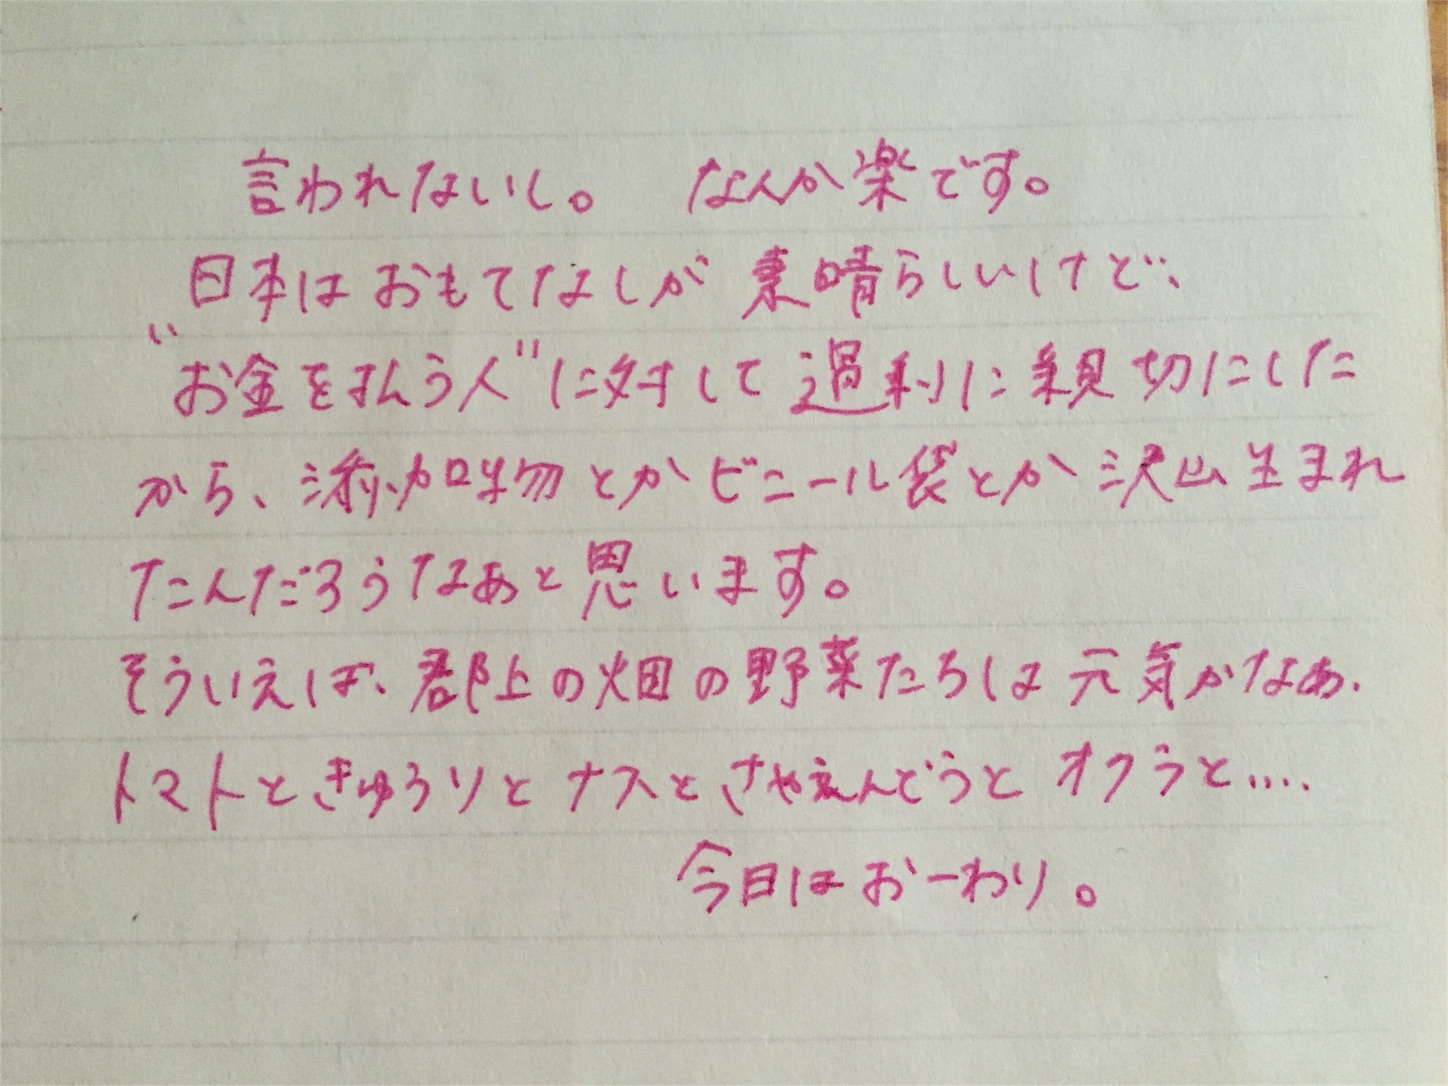 言われないし。 なんか楽です。
日本はおもてなしが素晴らしいけど、
"お金を払う人"に対して過剰に親切にした
から、添加物とかビニール袋とか沢山生まれ
たんだろうなぁと思います。
そういえば、郡上の畑の野菜たちは元気かなぁ.
トマトときゅうりとナスとさやえんどうとオクラと....
今日はおーわり。